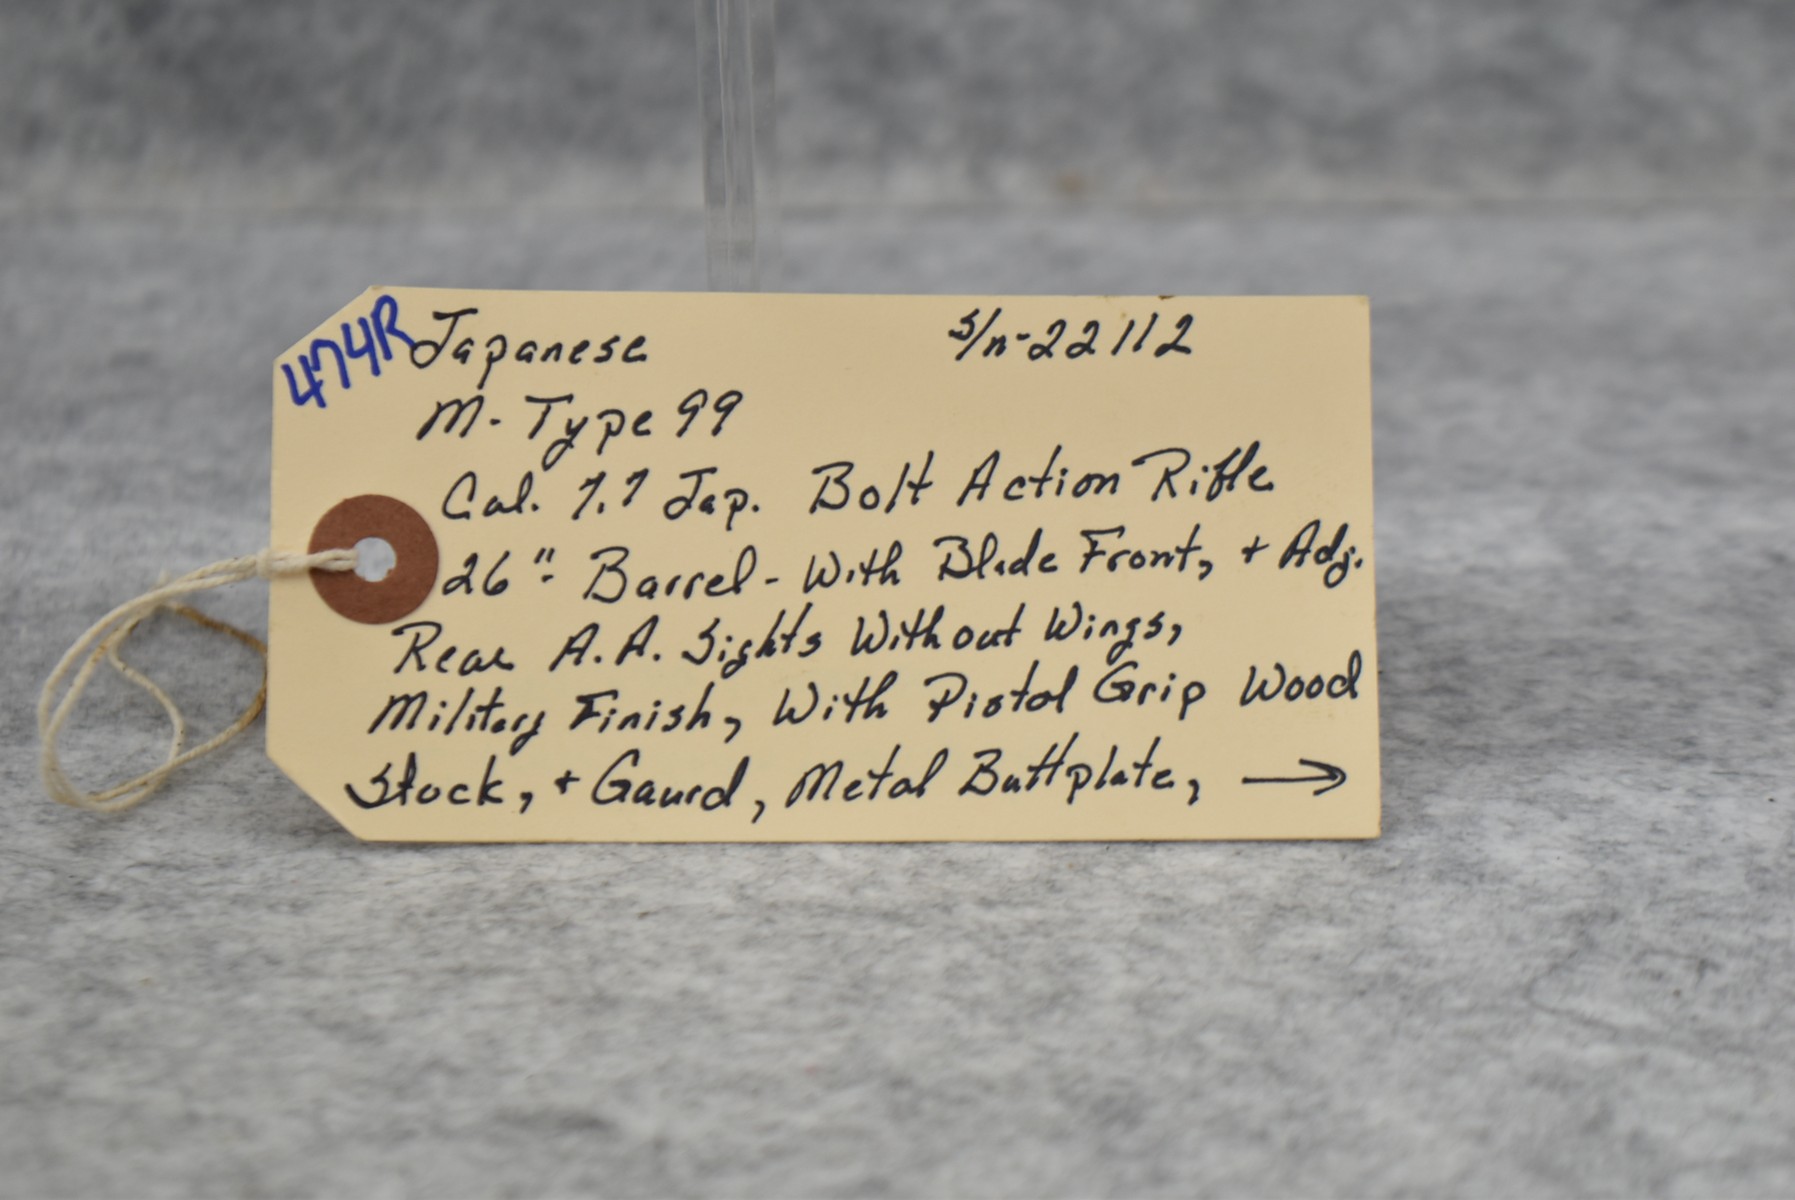 474R
Japanese S/n-22112
M. Type 99
Cal. 7.7 Jap. Bolt Action Rifle
26"- Barrel - With Blade Front, + Adj.
Rear A.A. Sights Without Wings,
Military Finish, With Pistol Grip Wood
Stock, + Gaurd, Metal Buttplate, →